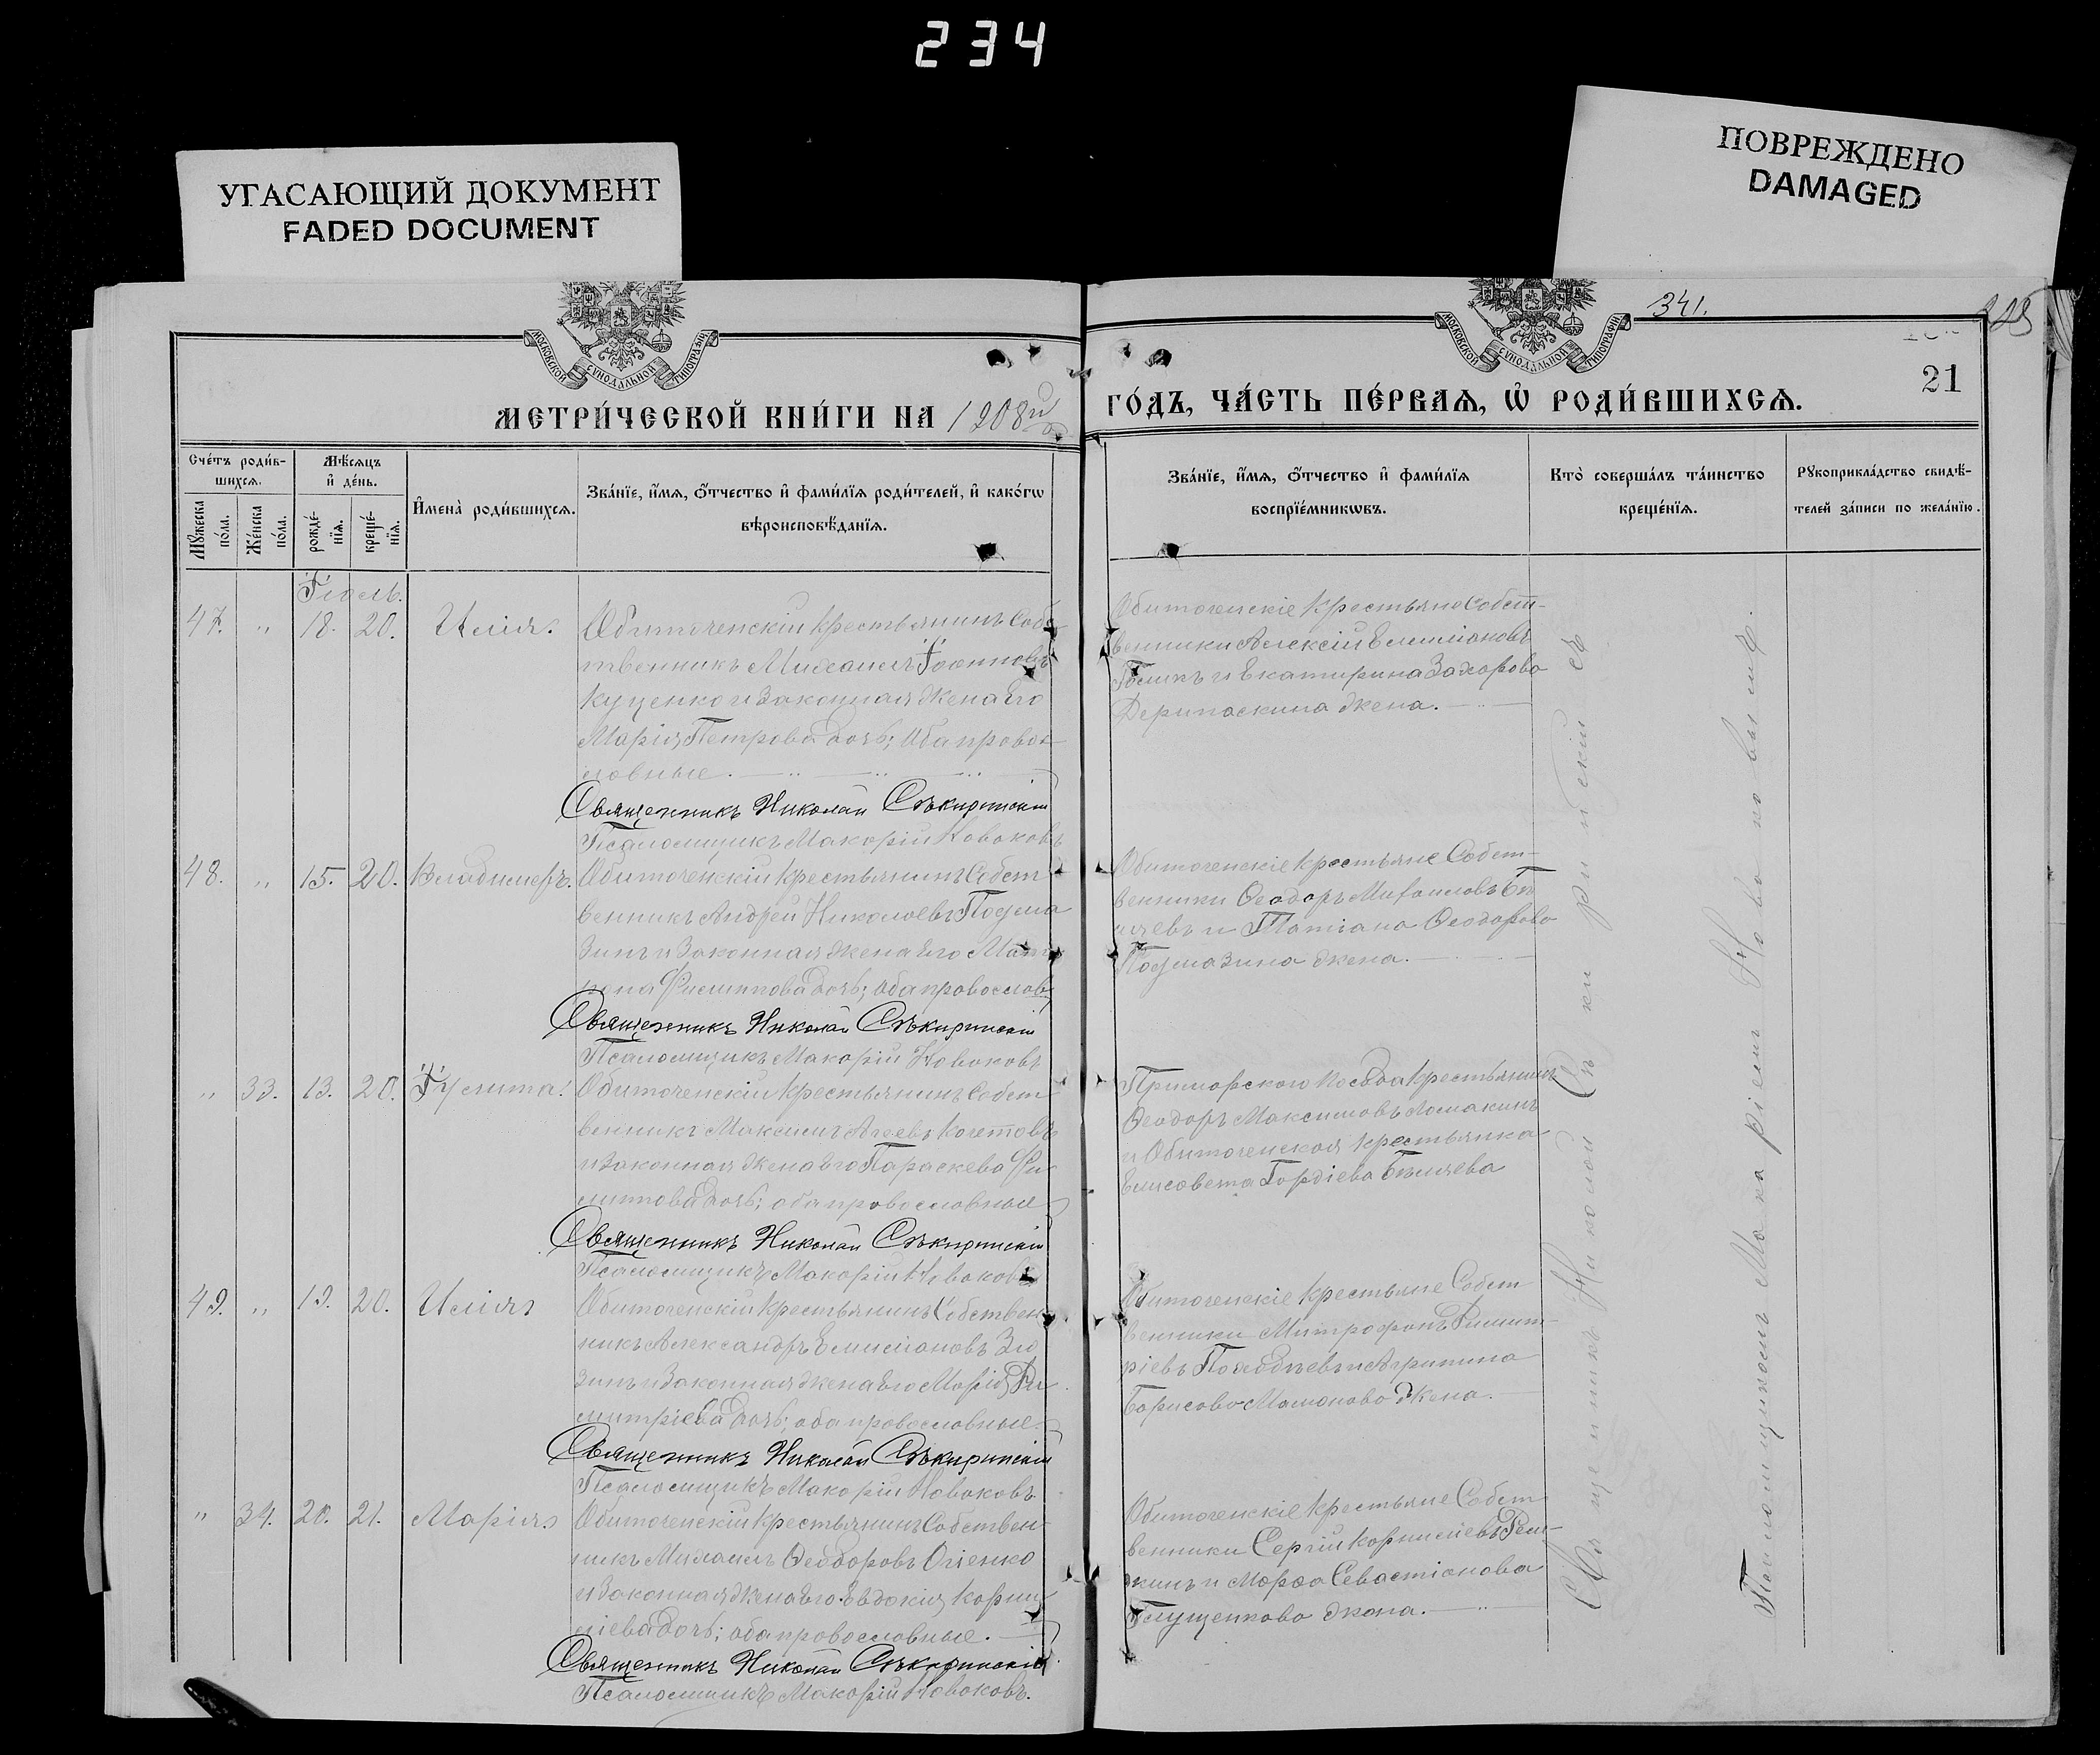 234
УГАСАЮЩИЙ ДОКУМЕНТ
FADED DOCUMENT
ПОВРЕЖДЕНО
DAMAGED
МОСКОВСКОЙ СѴНОДАЛЬНОЙ ТИПОГРАФІИ
МОСКОВСКОЙ СѴНОДАЛЬНОЙ ТИПОГРАФІИ
341.
21
МЕТРИ́ЧЕСКОЙ КНИ́ГИ НА 1908й
ГО́ДЪ, ЧА́СТЬ ПЕ́РВАЯ, Ѡ РОДИ́ВШИХСЯ.
Сче́тъ роди́в-
шихся.
Мꙋ́жеска по́ла.
Же́нска по́ла.
Мѣ́сяцъ
и҆ де́нь.
рожде́-
нїя.
креще́-
нїя.
И҆мена̀ роди́вшихся.
Зва́нїе, и҆́мя, ѻ҆́тчество и҆ фами́лїя роди́телей, и҆ како́гѡ
вѣроисповѣ́данїя.
Зва́нїе, и҆́мя, ѻ҆́тчество и҆ фами́лїя
воспрїе́мникѡвъ.
Кто̀ соверша́лъ та́инство
креще́нїя.
Рꙋкоприкла́дство свидѣ́-
телей за́писи по жела́нїю.
Іюль.
47. " 18. 20. Илія.
Обиточенскій крестьянинъ Собс
твенникъ Михаилъ Іоанновъ
Куценко и Законная жена Его
Марія Петрова дочь; Оба правос
лавные.
Священникъ Николай Сѣкиринскій
Псаломщикъ Макарій Новаковъ
Обиточенскіе Крестьяне Собст-
венники Алексій Емеліановъ
Голикъ и Екатирина Захарова
Дерипаскина жена.
48. " 15. 20. Владимеръ.
Обиточенскій Крестьянинъ Собст
венникъ Андрей Николаевъ Подма
зинъ и Законная жена Его Мат
рона Филиппова дочь; оба православ.
Священникъ Николай Сѣкиринскій
Псаломщикъ Макарій Новаковъ
Обиточенскіе крестьяне Собст-
венники Ѳеодоръ Михаиловъ Бѣ
ляевъ и Татіана Ѳеодорова
Подмазина жена.
" 33. 13. 20. Іулита.
Обиточенскій крестьянинъ Собст
венникъ Максимъ Агеевъ Кочетовъ
и Законная жена Его Параскева Фи
липпова дочь; оба православные
Священникъ Николай Сѣкиринскій
Псаломщикъ Макарій Новаковъ
Приморского посада крестьянинъ
Ѳеодоръ Максимовъ Ломакинъ
и Обиточенская крестьянка
Елисавета Гордіева Бѣляева
49. " 19. 20. Илія
Обиточенскій крестьянинъ Собствен
никъ Александръ Емиліановъ Зю
зинъ и Законная жена Его Марія Ди
митріева дочь; оба православные.
Священникъ Николай Сѣкиринскій
Псаломщикъ Макарій Новаковъ
Обиточенскіе крестьяне Собст
венники Митрофанъ Димит-
ріевъ и Агрипина
Борисова Мамонова жена.
" 34. 20. 21. Марія
Обиточенскій крестьянинъ Собствен-
никъ Михаилъ Ѳеодоровъ
и Законная жена Его Евдокія Корни
ліева дочь; оба православные.
Священникъ Николай Сѣкиринскій
Псаломщикъ Макарій Новаковъ.
Обиточенскіе крестьяне Собст
венники Сергій Корниліевъ
и Марѳа Севастіанова
Глущенкова жена.
Священникъ Николай Сѣкиринскій съ
Псаломщикомъ Макаріемъ Новаковымъ.